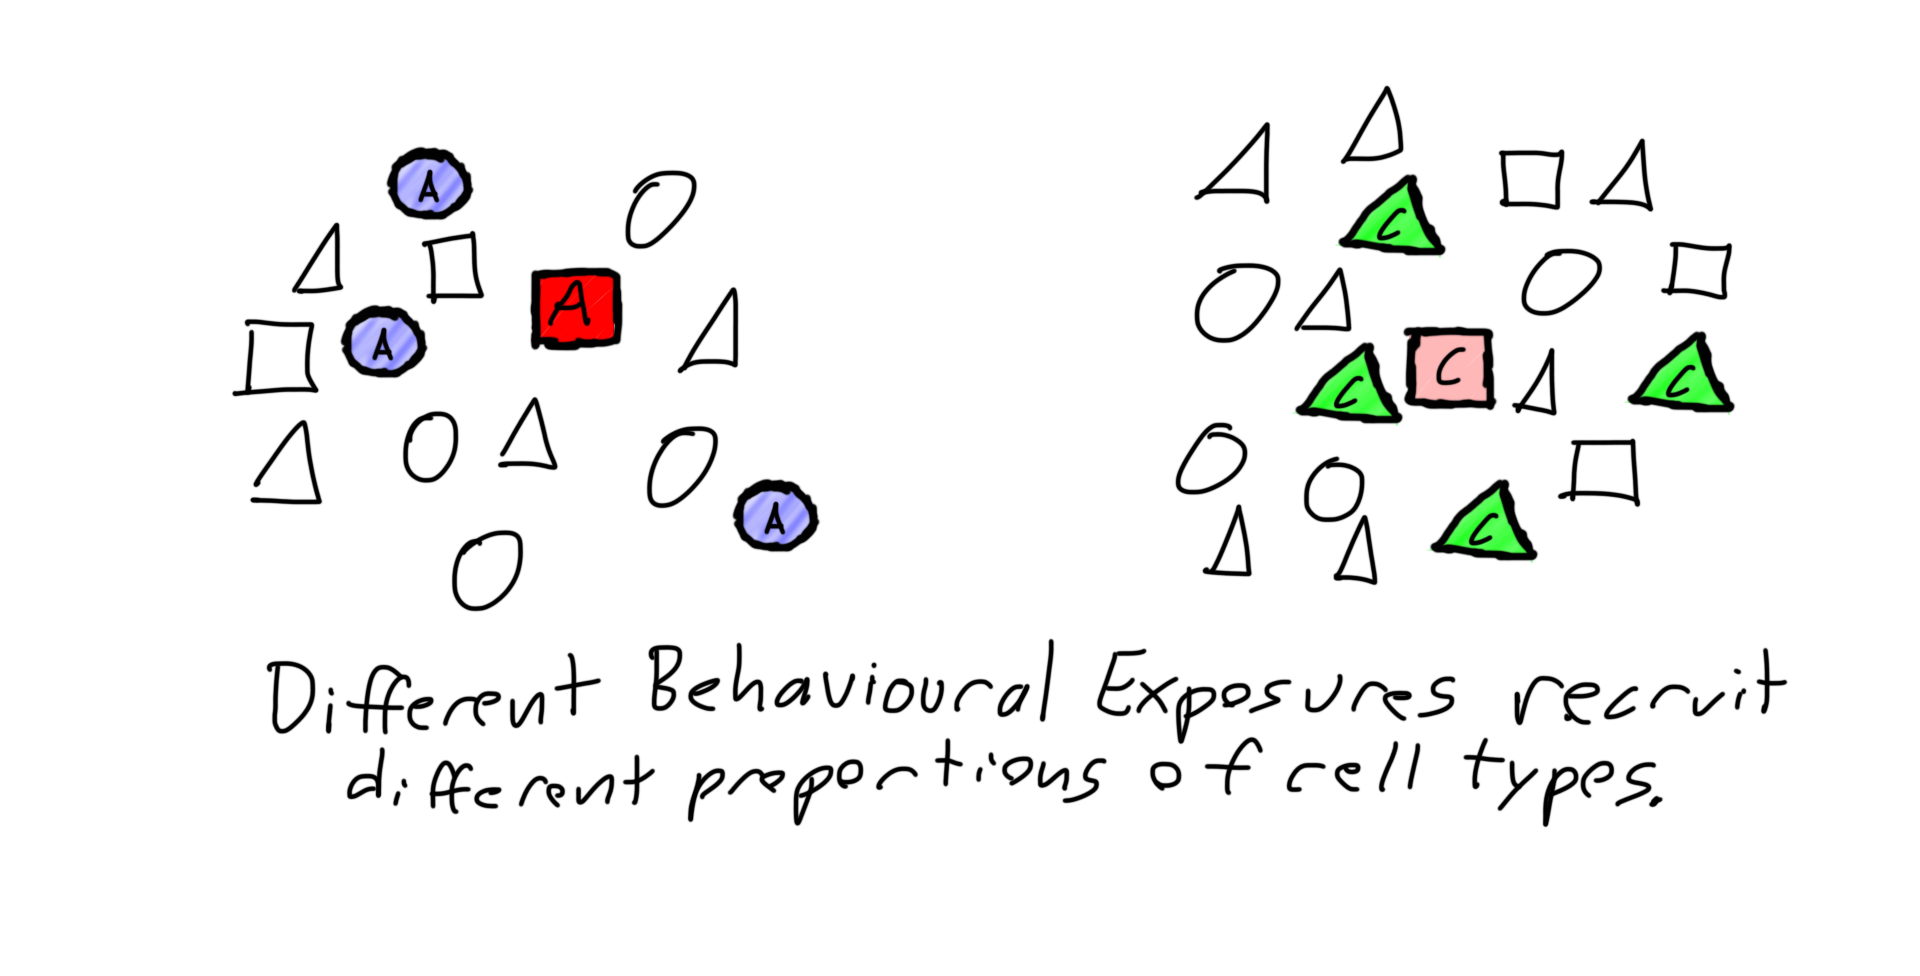 A
A
A
A
C
C
C
C
C
Different Behavioural Exposures recruit
different proportions of cell types.